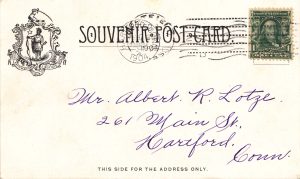 SOUVENIR·POST·CARD
1904
Mr. Albert R. Lotze.
261 Main St.
Hartford.
Conn.
THIS SIDE FOR THE ADDRESS ONLY.